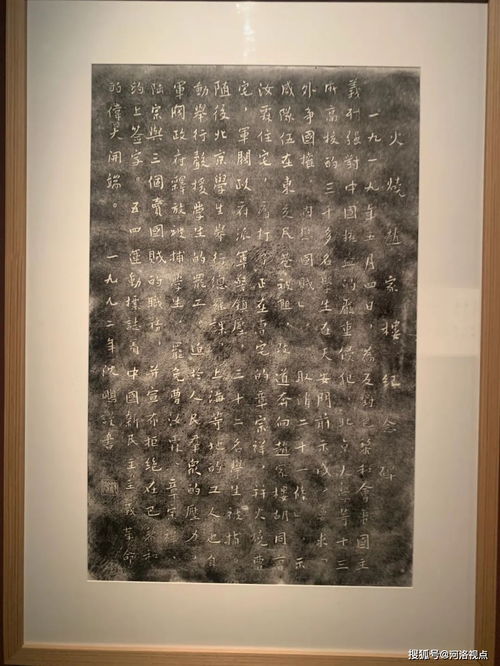 火燒趙家樓紀念碑
一九一九年五月四日，為反對巴黎和會帝國主
義列强對中國權益的嚴重侵犯，北京大學等十三
所高校的三千多名學生在天安門前示威，要求「
外争國權，内懲國賊」、「取消二十一條」，示
威隊伍在東交民巷被阻，改道奔向趙家樓胡同曹
汝霖住宅，痛打了正在曹宅的章宗祥，并火燒曹
宅，軍閥政府派軍警鎮壓，三十二名學生被捕。
隨後北京學生舉行總罷課，上海等地的工人也自
動舉行聲援學生的罷工。迫於人民羣衆的壓力，
軍閥政府釋放被捕學生，罷免曹汝霖、章宗祥、
陸宗輿三個賣國賊的職務，并宣布拒絕在巴黎和
約上簽字。五四運動標誌着中國新民主主義革命
的偉大開端。一九九二年沈鵬書
搜狐号@河洛视点